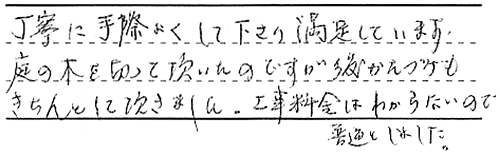 丁寧に手際よくして下さり満足しています。
庭の木を切って頂いたのですが後かたづけも
きちんとして頂きました。工事料金はわからないので
普通としました。